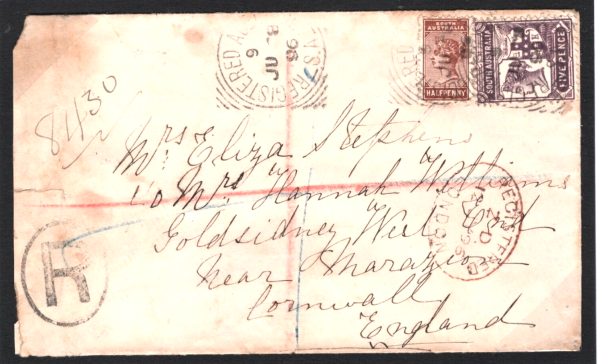 REGISTERED
JU 6
96
S.A.
SOUTH AUSTRALIA
HALFPENNY
SOUTH AUSTRALIA
FIVE PENCE
8430
Mrs Eliza Stephens
c/o Mrs Hannah Williams
Goldsidney Well End
Near Marazion
Cornwall
England
R
REGISTERED
LONDON
96